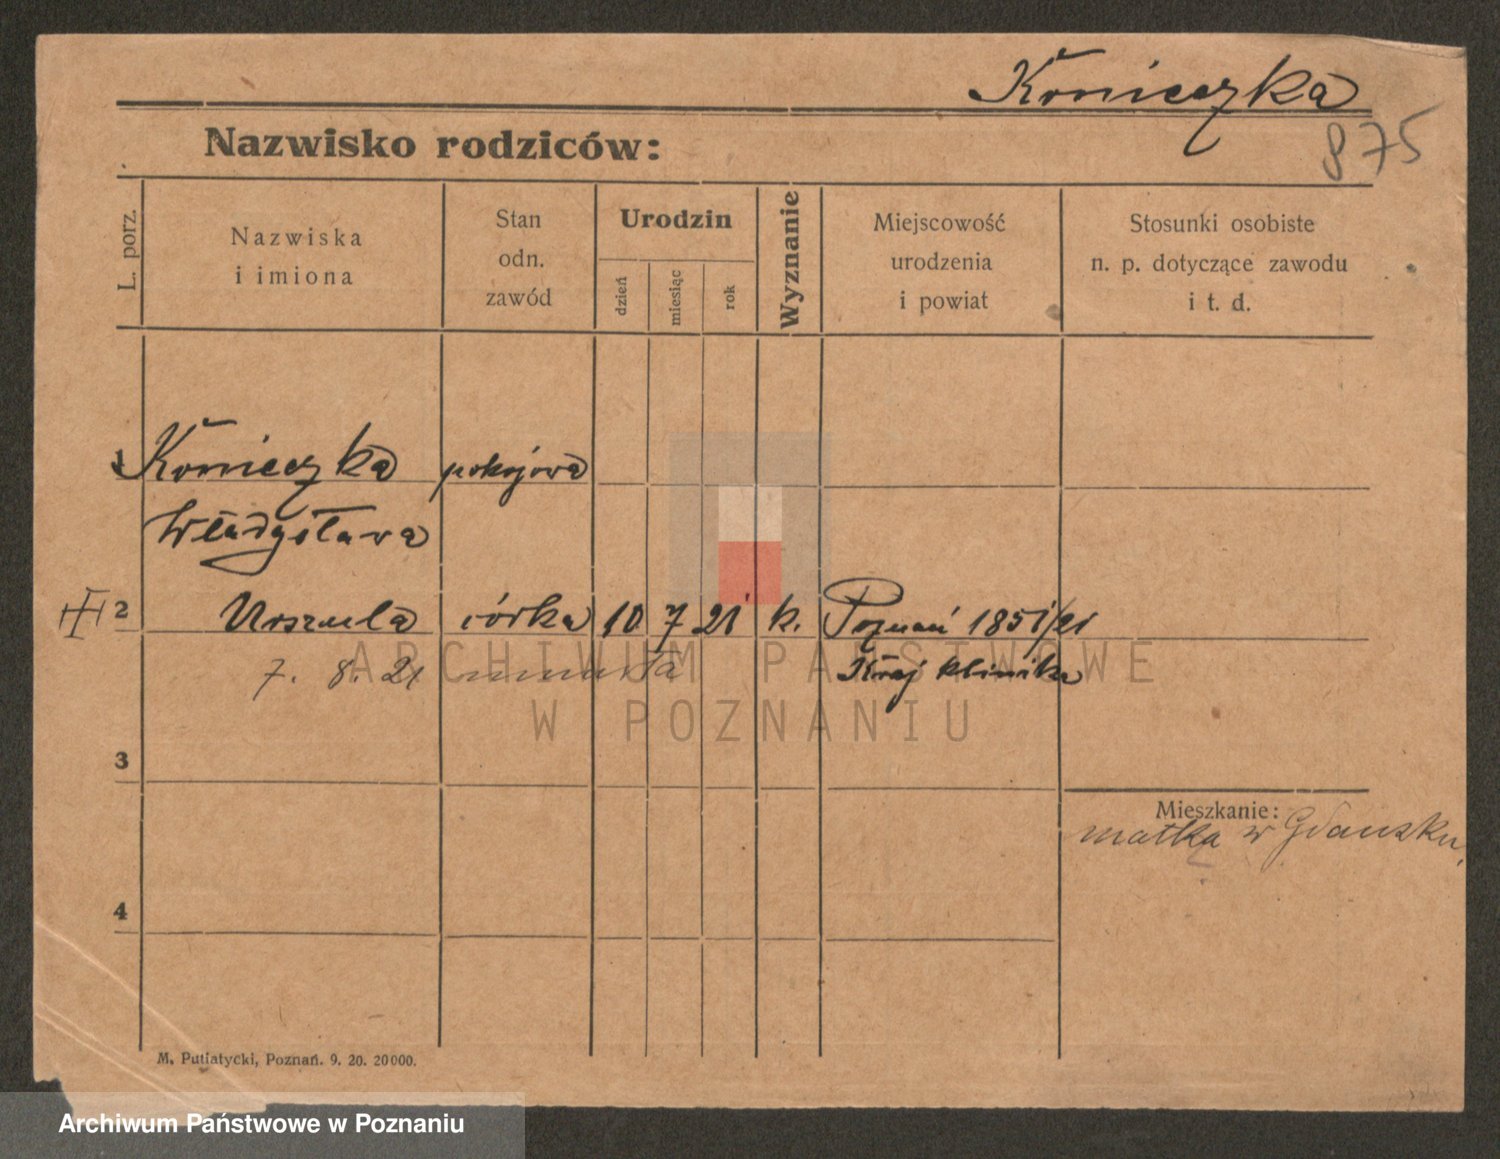 Konieczka
875
Nazwisko rodziców:
L. porz.
Nazwiska
i imiona
Stan
odn.
zawód
Urodzin
dzień
miesiąc
rok
Wyznanie
Miejscowość
urodzenia
i powiat
Stosunki osobiste
n. p. dotyczące zawodu
i t. d.
1 Konieczka pokojowa
Władysława
2 Urszula córka 10 7 21 k. Poznań 1851/21
7. 8. 21 umarła Kraj klinika
ARCHIWUM PAŃSTWOWE
W POZNANIU
3
Mieszkanie:
matka w Gdańsku.
4
M. Putiatycki, Poznań. 9. 20. 20000.
Archiwum Państwowe w Poznaniu